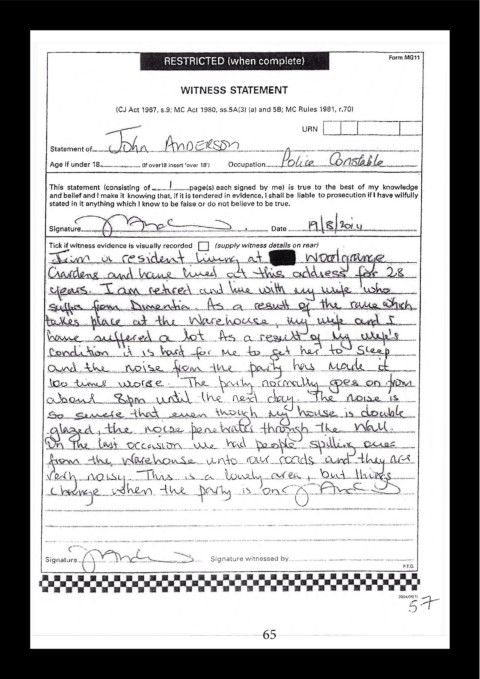 RESTRICTED (when complete)
Form MG11
WITNESS STATEMENT
(CJ Act 1967, s.9; MC Act 1980, ss.5A(3) (a) and 5B; MC Rules 1981, r.70)
URN
Statement of John ANDERSON
Age if under 18 (If over 18 insert 'over 18') Occupation Police Constable
This statement (consisting of 1 page(s) each signed by me) is true to the best of my knowledge
and belief and I make it knowing that, if it is tendered in evidence, I shall be liable to prosecution if I have wilfully
stated in it anything which I know to be false or do not believe to be true.
Signature Date 19/8/2014
Tick if witness evidence is visually recorded (supply witness details on rear)
I am a resident living at Woodgrange
Gardens and have lived at this address for 28
years. I am retired and live with my wife who
suffer from Dimentia. As a result of the rave which
takes place at the Warehouse, my wife and I
have suffered a lot. As a result of my wife's
condition it is hard for me to get her to sleep
and the noise from the party has made it
100 times worse. The party normally goes on from
about 8pm until the next day. The noise is
so severe that even though my house is double
glazed, the noise penetrates through the wall.
On the last occasion we had people spilling over
from the Warehouse unto our roads and they are
very noisy. This is a lovely area, but things
change when the party is on
Signature Signature witnessed by
P.T.O.
57
65